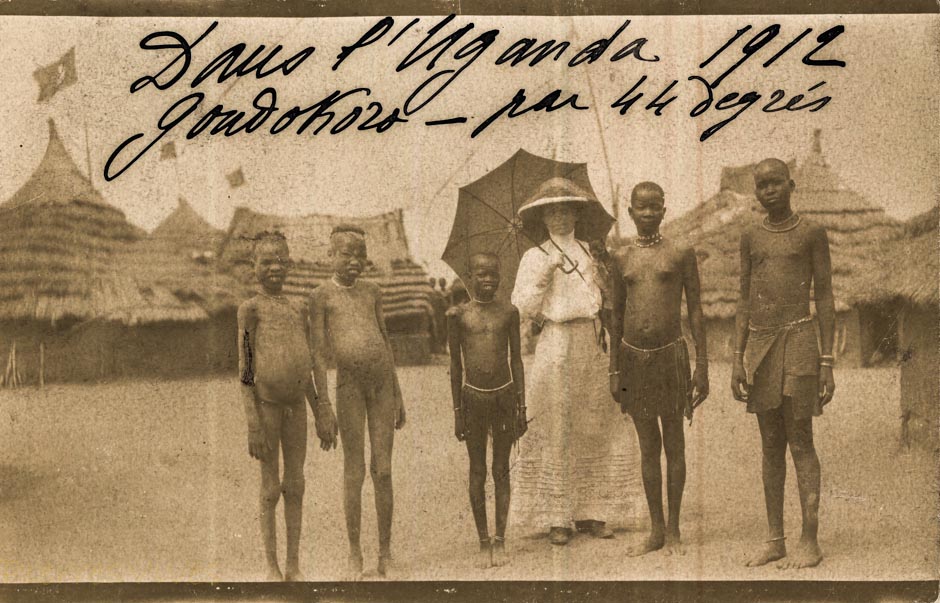 Dans l'Uganda 1912
Gondokoro – par 44 degrés